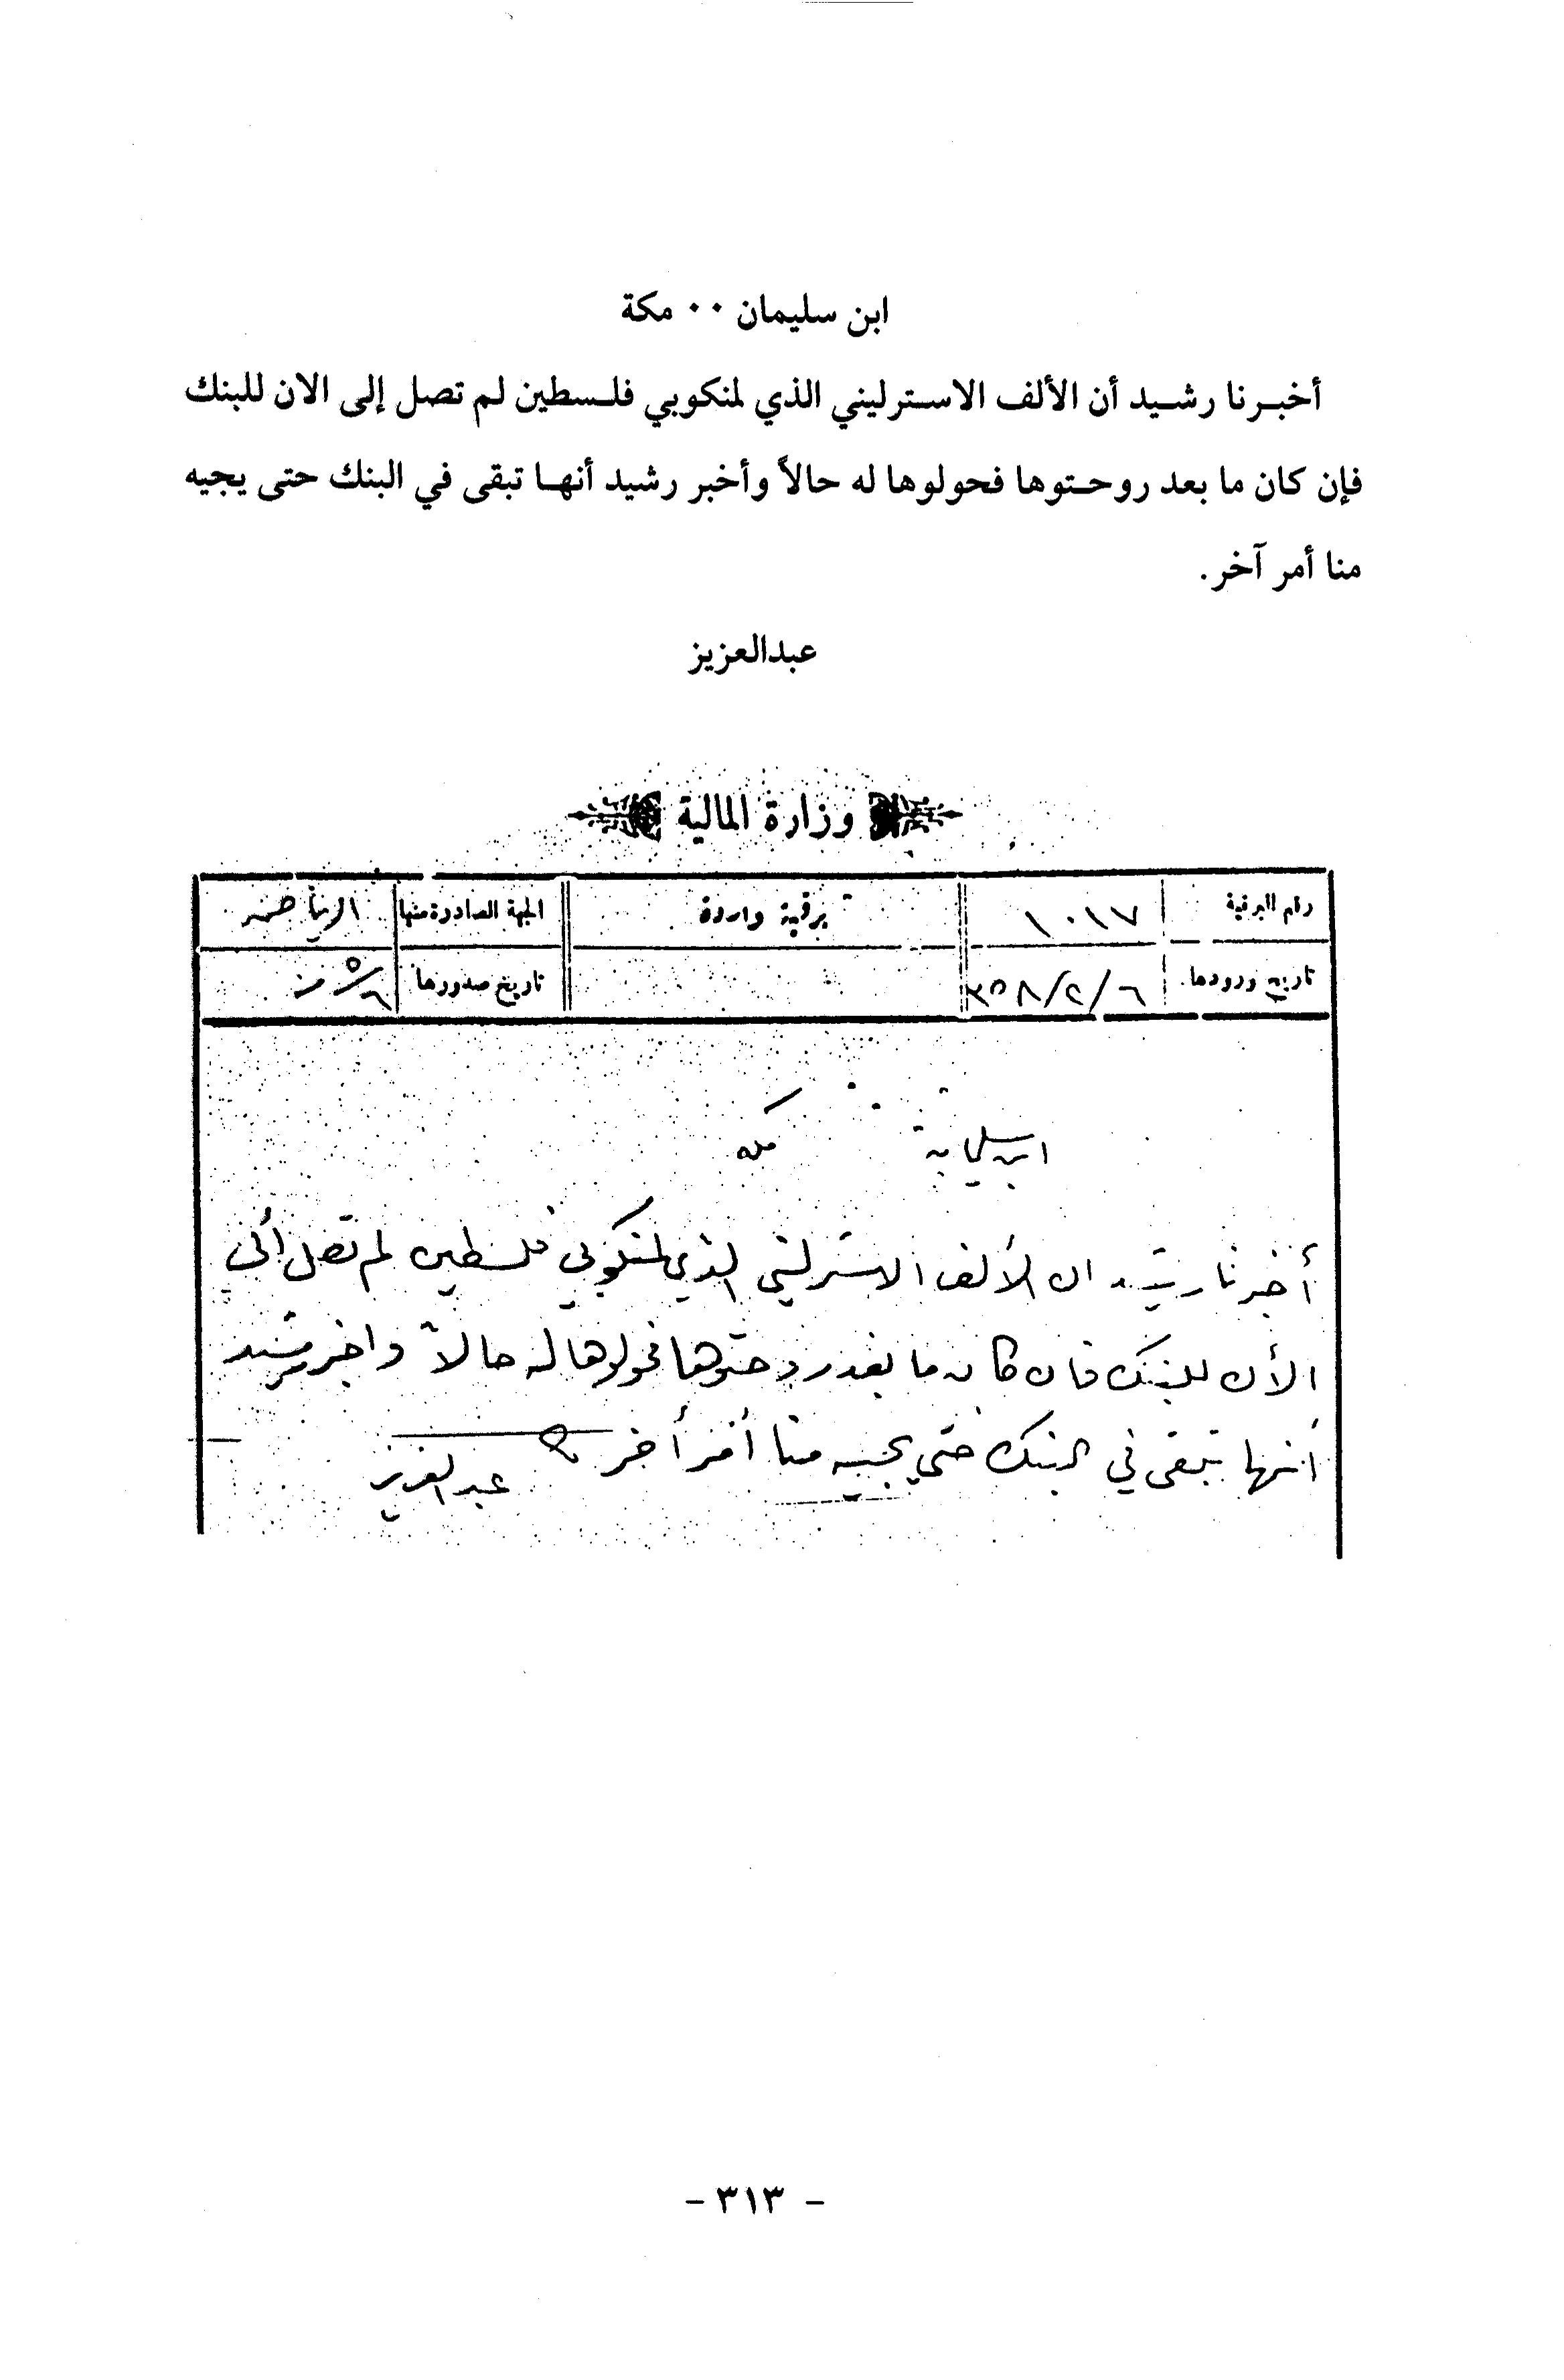 ابن سليمان ٠٠ مكة
أخبرنا رشيد أن الألف الاسترليني الذي لمنكوبي فلسطين لم تصل إلى الان للبنك
فإن كان ما بعد روحتوها فحولوها له حالاً وأخبر رشيد أنها تبقى في البنك حتى يجيه
منا أمر آخر.
عبدالعزيز
وزارة المالية
رقم البرقية ١٠١٧ برقية واردة الجهة الصادرة منها الرياض
تاريخ ورودها ٣٥٨/٢/٦ تاريخ صدورها
ابن سليمان مكه
أخبرنا رشيد ان الألف الاسترليني الذي لمنكوبي فلسطين لم تصل ألى
الأن للبنك فان كان ما بعد روحتوها فحولوها له حالاً واخبر رشيد
أنها تبقى في البنك حتى يجيه منا أمر أخر
عبدالعزيز
- ٣١٣ -